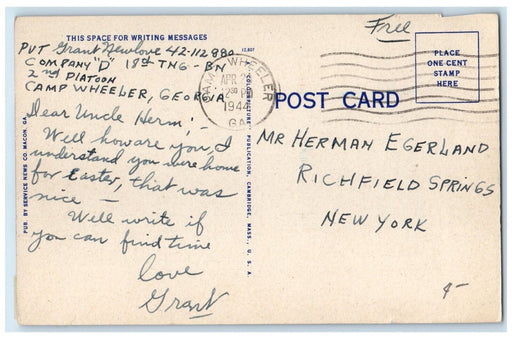 THIS SPACE FOR WRITING MESSAGES
Free
PVT Grant Newlove 42-112880
COMPANY "D" 18th TNG-BN
2nd PLATOON
CAMP WHEELER, GEORGIA
Dear Uncle Herm; -
Well how are you, I
understand you were home
for Easter, that was
nice —
Well write if
you can find time
love
Grant
PUB. BY SERVICE NEWS CO. MACON, GA.
12,807
PUBLICATION, CAMBRIDGE, MASS., U. S. A.
CAMP WHEELER
APR
1944
GA.
PLACE
ONE CENT
STAMP
HERE
POST CARD
MR HERMAN EGERLAND
RICHFIELD SPRINGS
NEW YORK